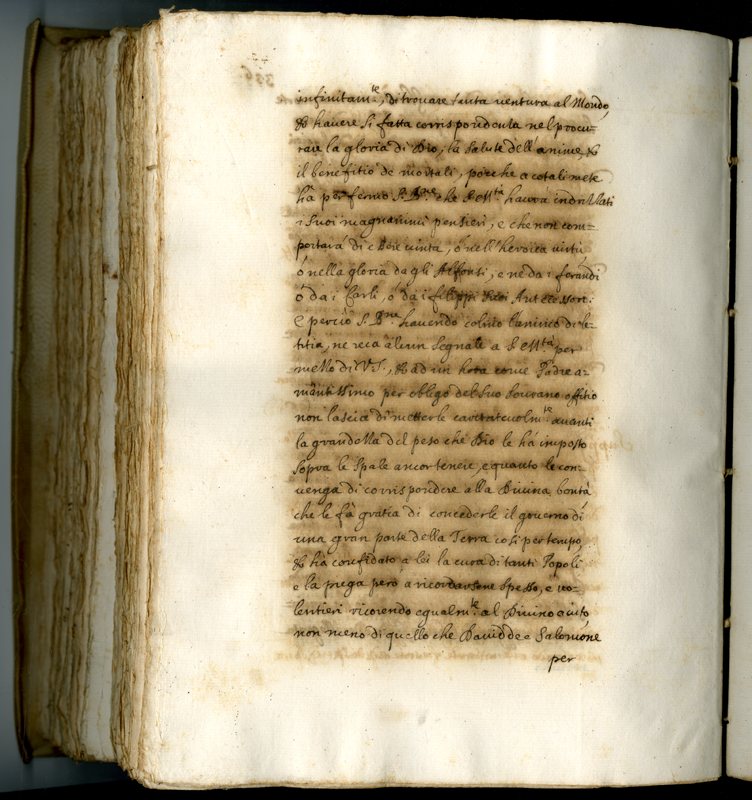 infinitam.te, di trovare tanta ventura al Mondo,
& havere si fatta corrispondenza nel procu=
rare la gloria di Dio, la salute dell'anime, &
il benefitio de mortali, poiche a cotali mete
hà per fermo S. B.ne che S. M.tà havrà indrizzati
i suoi magnanimi pensieri, e che non com=
portarà di esser vinta, ó nell'heroica virtù
ó nella gloria da gli Alfonsi, e ne da i ferandi
ó da i Carli, ó da i filippi suoi Antecessori:
E perciò S. B.ne havendo colmo l'animo di le=
titia, ne reca alcun segnale a S. M.tà per
mezzo di V. S., & ad un hora come Padre a=
mantissimo per obligo del suo sourano offitio
non lascia di metterle caritateuolm.te avanti
la grandezza del peso che Dio le hà imposto
sopra le spale ancor tenere, e quanto le con=
venga di corrispondere alla Divina bontà
che le fà gratia di concederle il governo di
una gran parte della Terra cosi per tempo,
& hà confidato a lei la cura di tanti Popoli
e la prega però a ricordarsene spesso, e vo=
lentieri ricorendo egualm.te al Divino aiuto,
non meno di quello che Davidde e Salomone
per